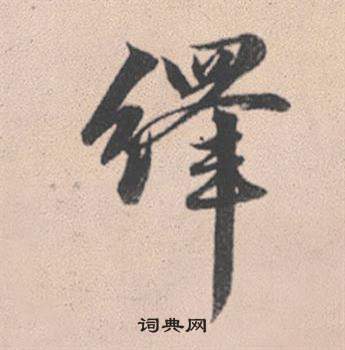 繹
词典网